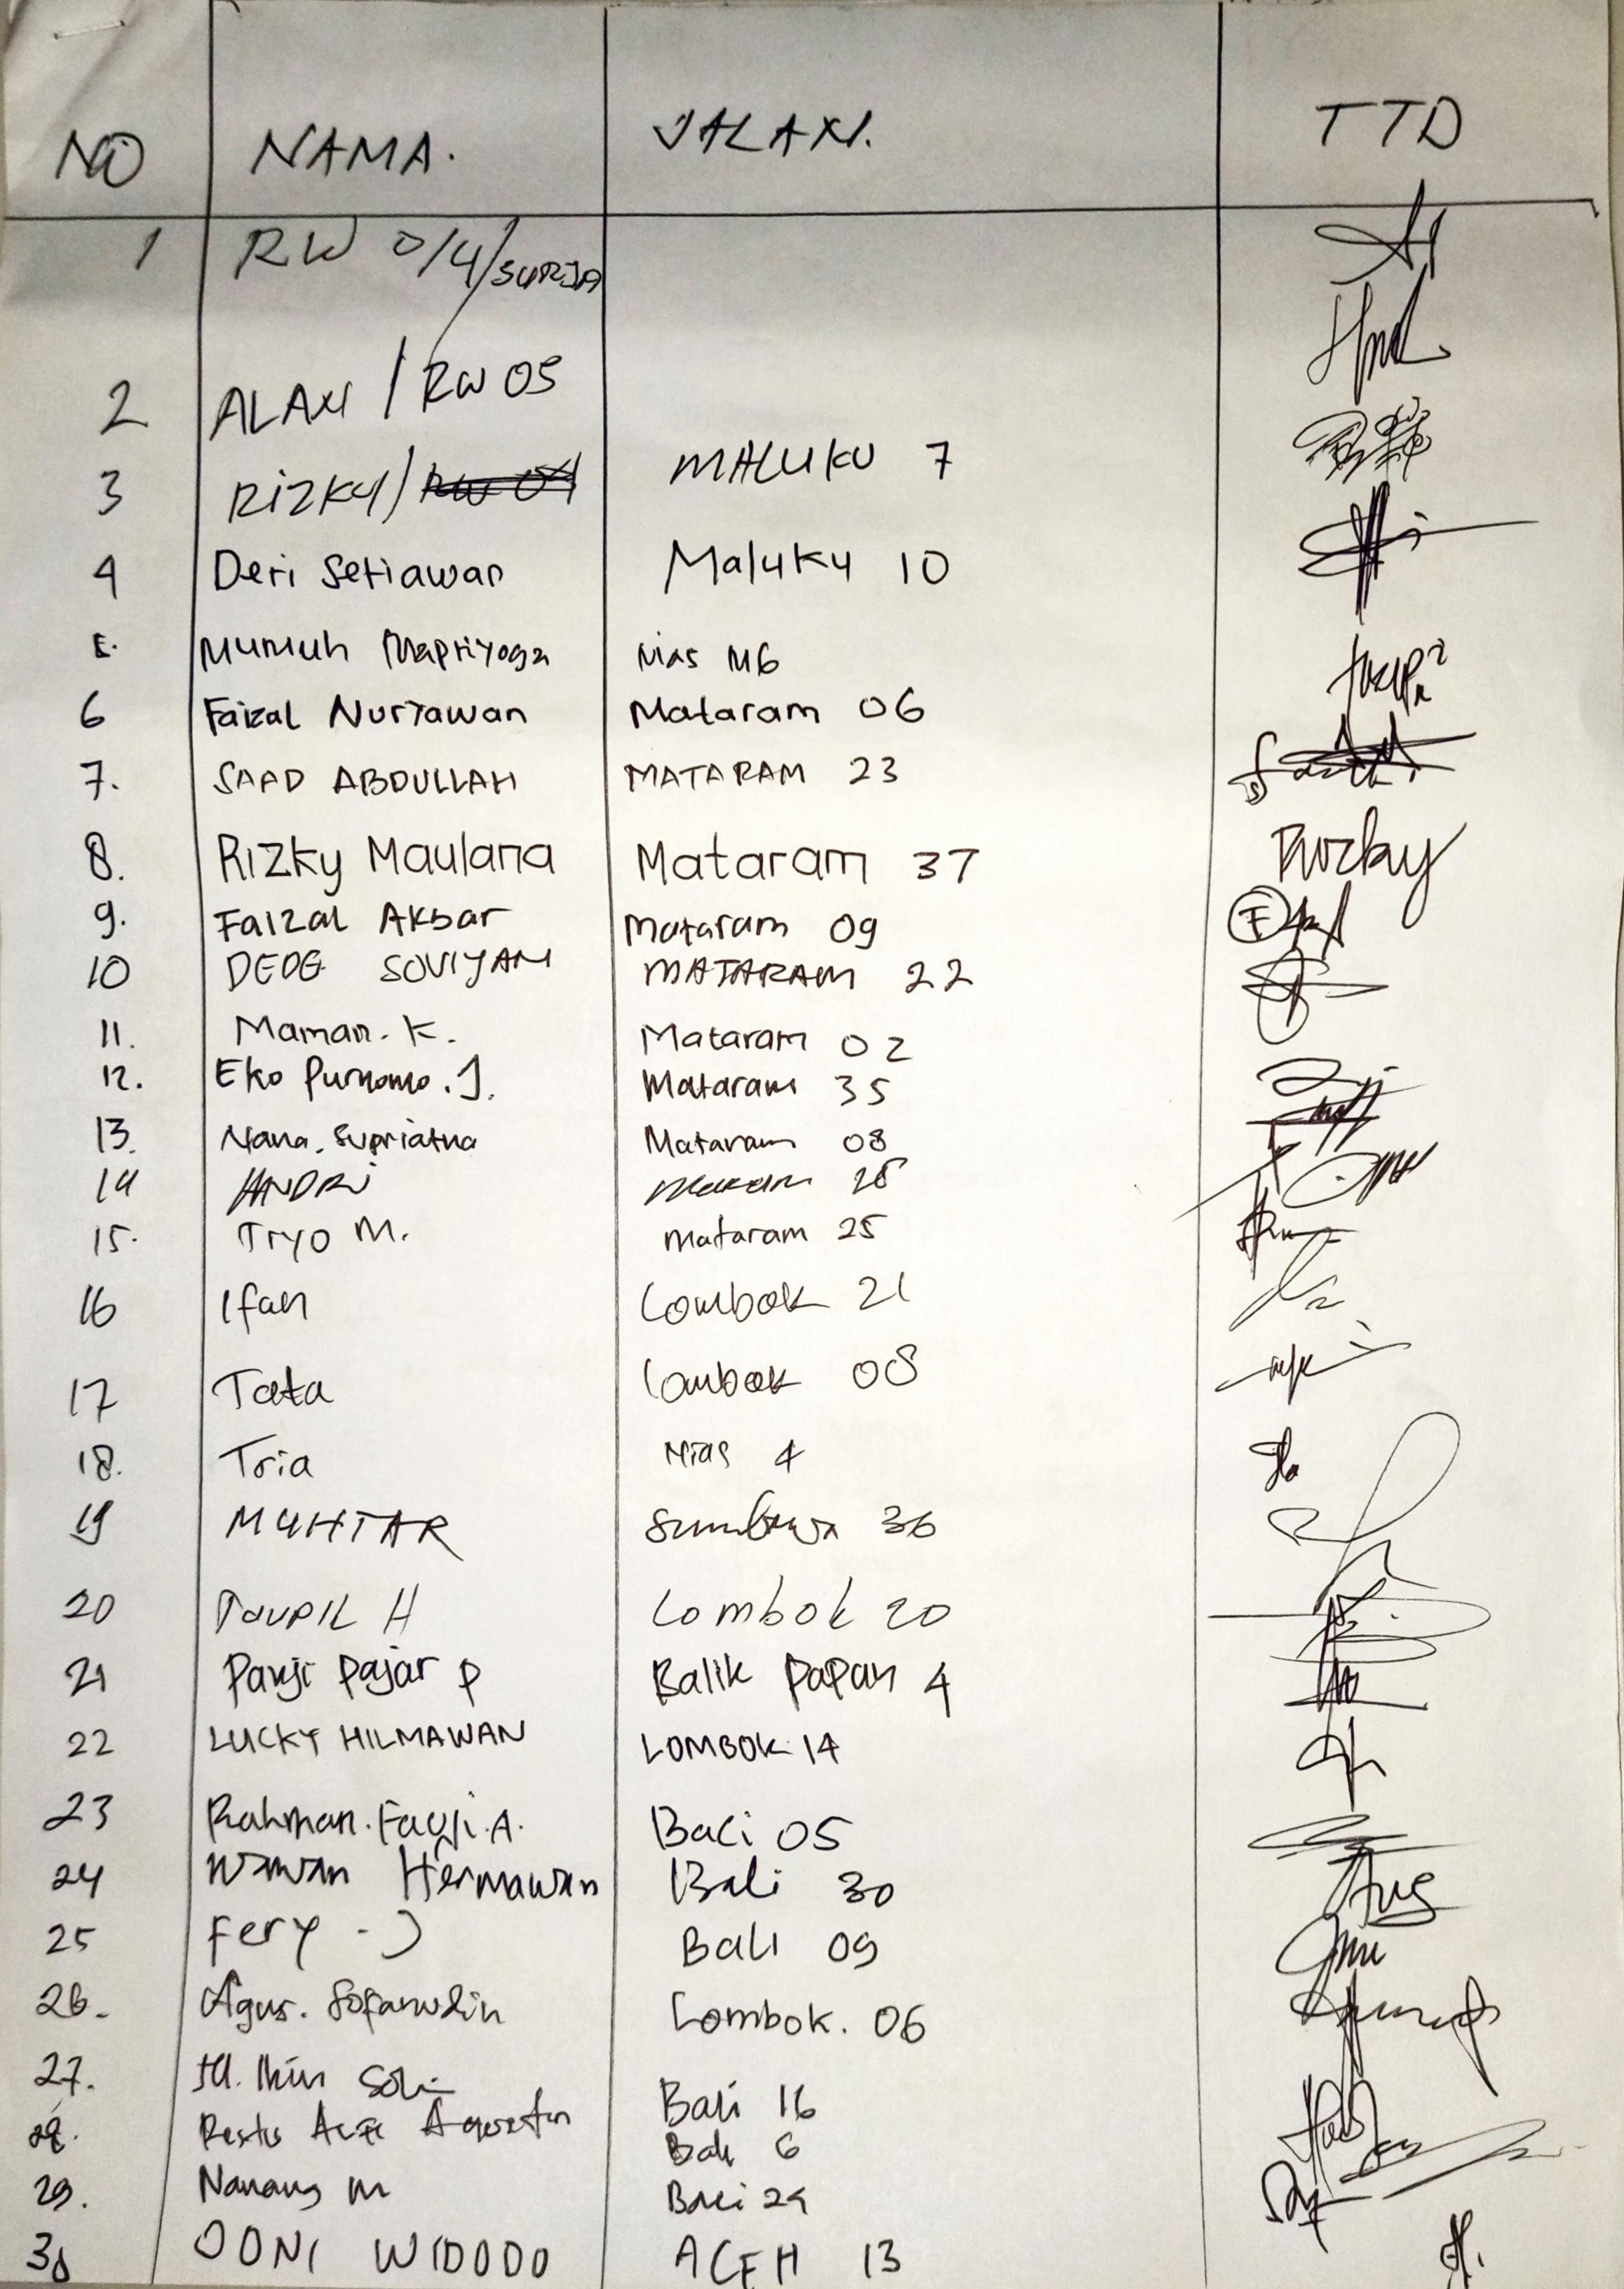 NO NAMA. JALAN. TTD
1 RW 014/SURJA
2 ALAN / RW 05
3 RIZKY/ RW 04 MALUKU 7
4 Deri Setiawan Maluku 10
5. Mumuh Mapriyoga Nias M6
6 Faizal Nurjawan Mataram 06
7. SAAD ABDULLAH MATARAM 23
8. Rizky Maulana Mataram 37 Rizky
9. Faizal Akbar Mataram 09
10 DEDE SOVIYAN MATARAM 22
11. Maman. K. Mataram 02
12. Eko Purnomo. J. Mataram 35
13. Nana. Supriatna Mataram 08
14 ANDRi 28
15. Tryo M. Mataram 25
16 Ifan Lombok 21
17 Tata Lombok 08
18. Tria Nias 4
19 MUHTAR Sumbawa 36
20 TOUPIL H Lombok 20
21 Panji pajar p Balik papan 4
22 LUCKY HILMAWAN LOMBOK 14
23 Rahman. Fauji. A. Bali 05
24 Wawan Hermawan Bali 30
25 fery - J Bali 09
26. Agus. Sofanudin Lombok. 06
27. Bali 16
28. Bali 6
29. Nanang M Bali 29
30 DONI WIDODO ACEH 13